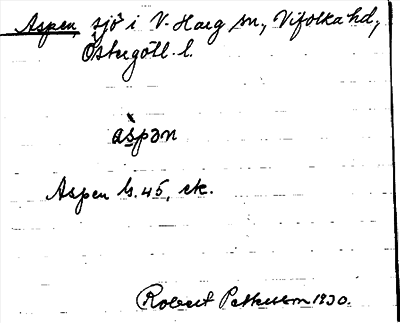 Aspen, sjö i V. Harg sn, Vifolka hd,
Östergötl. l.
àspən
Aspen G. 45, ek.
Robert Pettersson 1930.